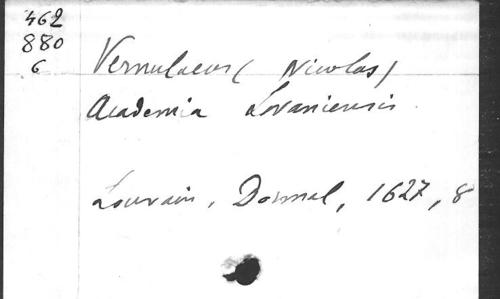 462
880
6
Vernulaeus (Nicolas)
Academia Lovaniensis.
Louvain, Dormal, 1627, 8